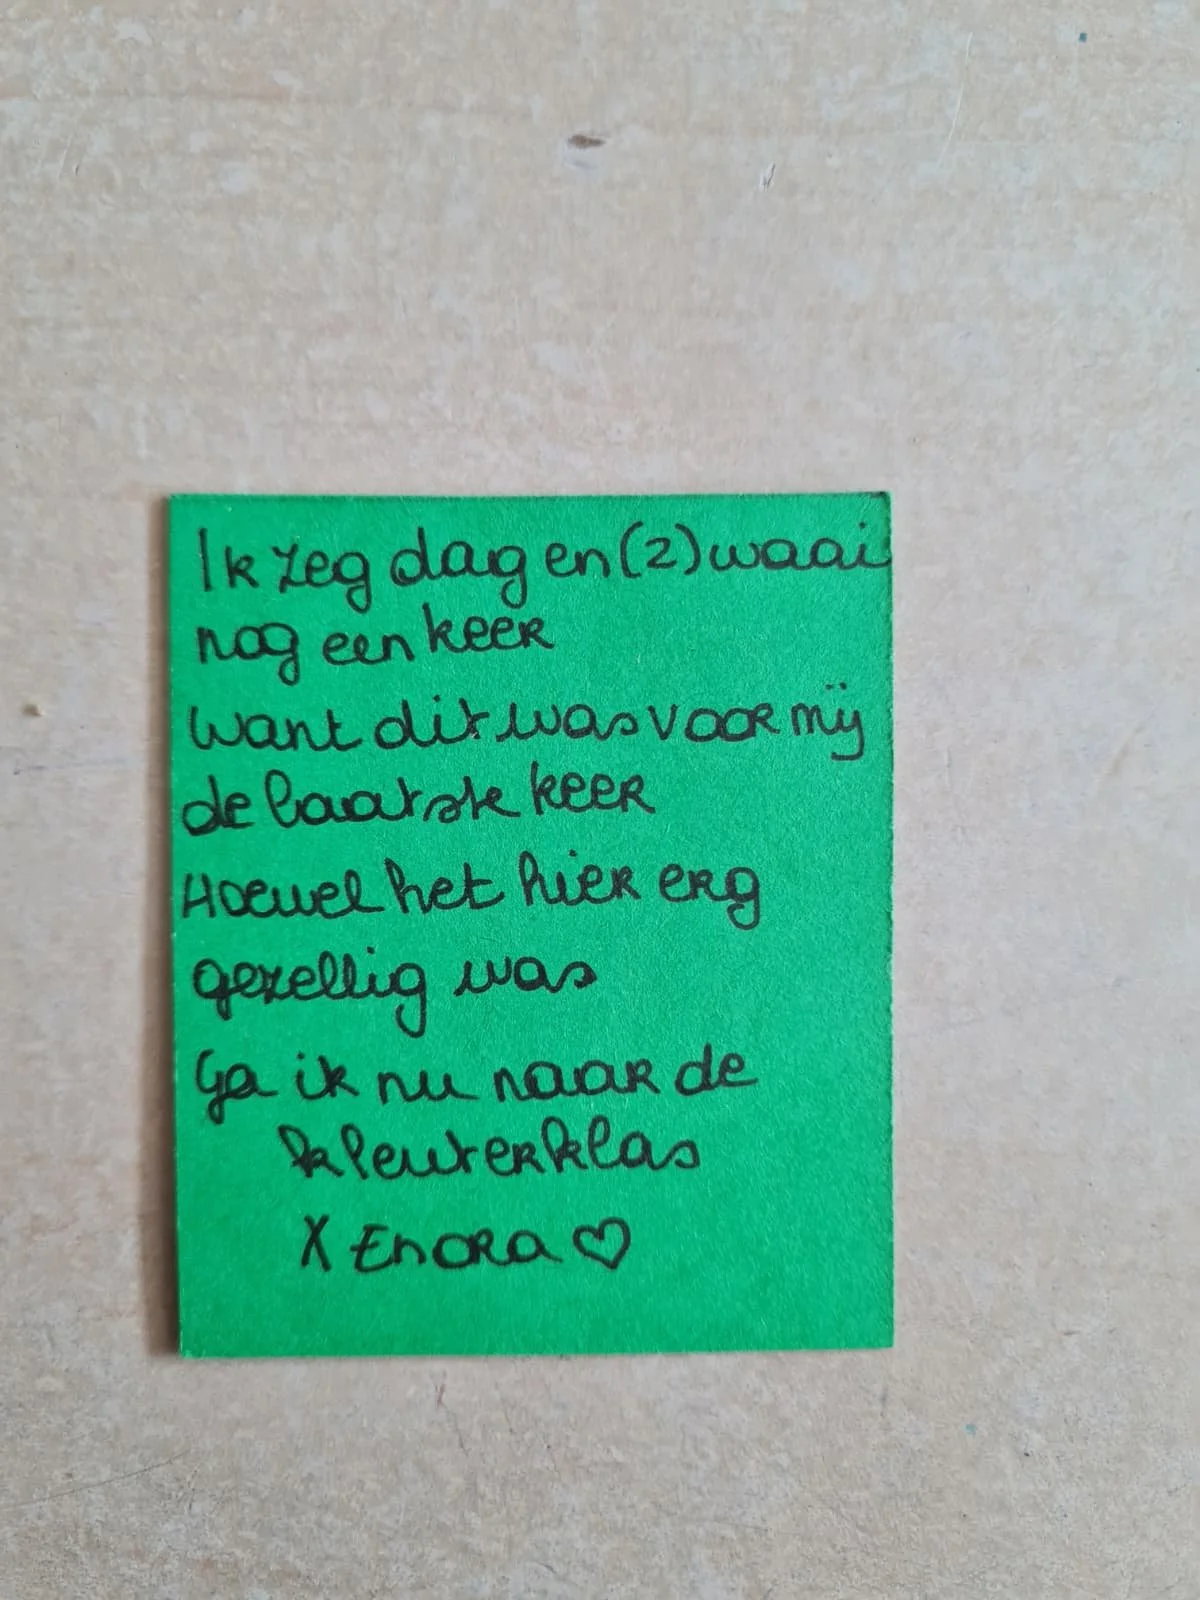 Ik zeg dag en (z)waai
nog een keer
Want dit was voor mij
de laatste keer
Hoewel het hier erg
gezellig was
Ga ik nu naar de
kleuterklas
X Enora ♡